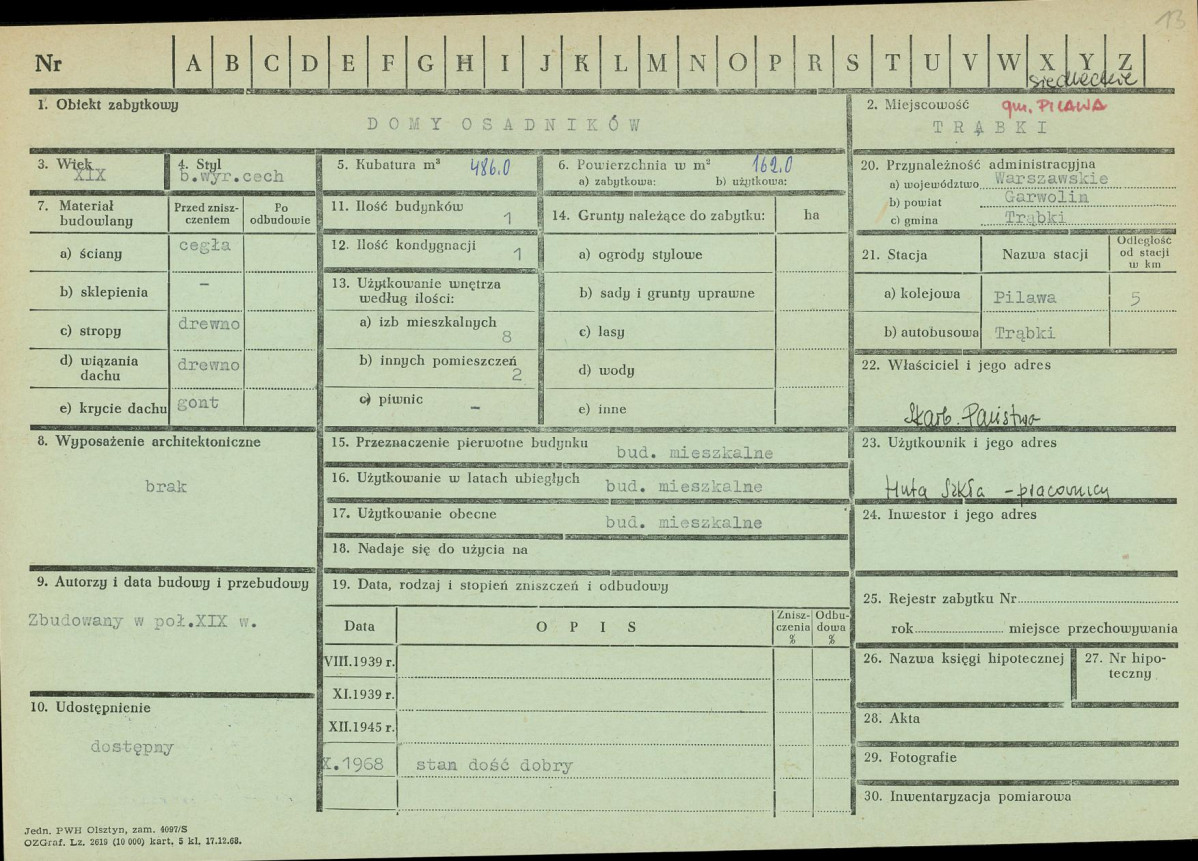 13
Nr A B C D E F G H I J K L M N O P R S T U V W X Y Z
siedleckie
1. Obiekt zabytkowy
DOMY OSADNIKÓW
2. Miejscowość gm. PILAWA
TRĄBKI
3. Wiek
XIX
4. Styl
b.wyr.cech
5. Kubatura m³ 486.0
6. Powierzchnia w m² 162.0
a) zabytkowa: b) użytkowa:
20. Przynależność administracyjna
a) województwo Warszawskie
b) powiat Garwolin
c) gmina Trąbki
7. Materiał budowlany
Przed zniszczeniem
Po odbudowie
a) ściany cegła
b) sklepienia –
c) stropy drewno
d) wiązania dachu drewno
e) krycie dachu gont
11. Ilość budynków 1
12. Ilość kondygnacji 1
13. Użytkowanie wnętrza
według ilości:
a) izb mieszkalnych
8
b) innych pomieszczeń
2
c) piwnic –
14. Grunty należące do zabytku: ha
a) ogrody stylowe
b) sady i grunty uprawne
c) lasy
d) wody
e) inne
21. Stacja Nazwa stacji Odległość od stacji w km
a) kolejowa Pilawa 5
b) autobusowa Trąbki
22. Właściciel i jego adres
Skarb. Państwa
8. Wyposażenie architektoniczne
brak
15. Przeznaczenie pierwotne budynku
bud. mieszkalne
16. Użytkowanie w latach ubiegłych bud. mieszkalne
17. Użytkowanie obecne bud. mieszkalne
18. Nadaje się do użycia na
23. Użytkownik i jego adres
Huta Szkła – pracownicy
24. Inwestor i jego adres
9. Autorzy i data budowy i przebudowy
Zbudowany w poł.XIX w.
19. Data, rodzaj i stopień zniszczeń i odbudowy
Data OPIS Zniszczenia % Odbudowa %
VIII.1939 r.
XI.1939 r.
XII.1945 r.
X.1968 stan dość dobry
25. Rejestr zabytku Nr
rok miejsce przechowywania
26. Nazwa księgi hipotecznej
27. Nr hipoteczny
28. Akta
29. Fotografie
30. Inwentaryzacja pomiarowa
10. Udostępnienie
dostępny
Jedn. PWH Olsztyn, zam. 4097/S
OZGraf. Lz. 2619 (10 000) kart, 5 kl, 17.12.68.